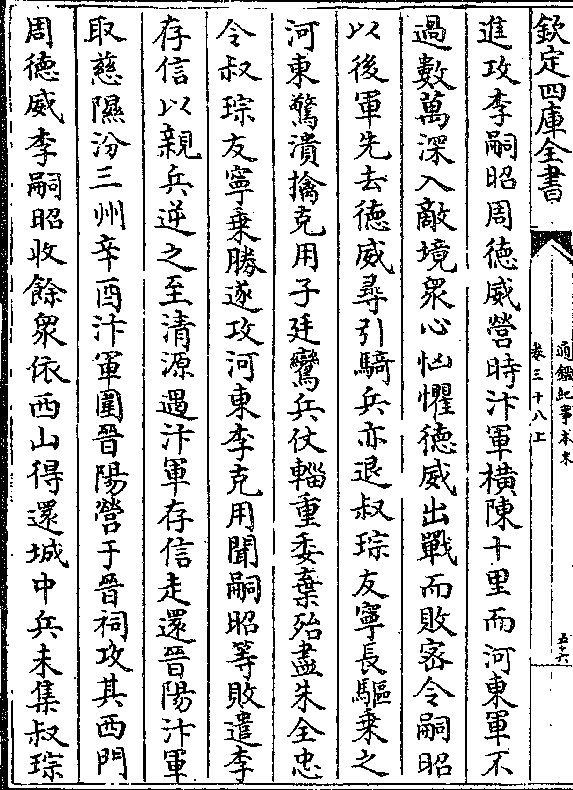 欽定四庫全書
通鑑紀事本末
卷三十八上
進攻李嗣昭周徳威營時汴軍橫陳十里而河東軍不
過數萬深入敵境衆心忷懼徳威出戰而敗宻令嗣昭
以後軍先去徳威尋引騎兵亦退叔琮友寧長驅乗之
河東驚潰擒克用子廷鸞兵仗輜重委棄殆盡朱全忠
令叔琮友寧乗勝遂攻河東李克用聞嗣昭等敗遣李
存信以親兵逆之至清源遇汴軍存信走還晉陽汴軍
取慈隰汾三州辛酉汴軍圍晉陽營于晉祠攻其西門
周徳威李嗣昭收餘衆依西山得還城中兵未集叔琮